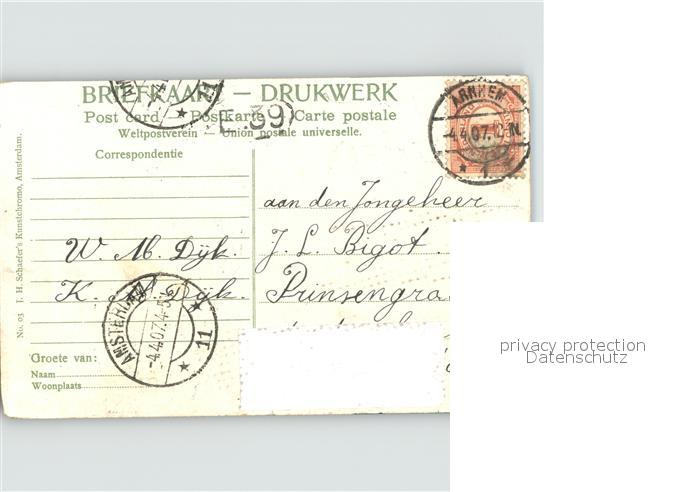 BRIEFKAART — DRUKWERK
Post card — Postkarte — Carte postale
E.39
Weltpostverein — Union postale universelle.
Correspondentie
ARNHEM
4.4.07.12 N
1
aan den Jongeheer
J. L. Bigot.
Prinsengra
W. M. Dijk.
K. M. Dijk.
AMSTERDAM
4.4.07.4-5
11
Groete van:
Naam
Woonplaats
No. 03 J. H. Schaefer's Kunstchromo, Amsterdam.
privacy protection
Datenschutz